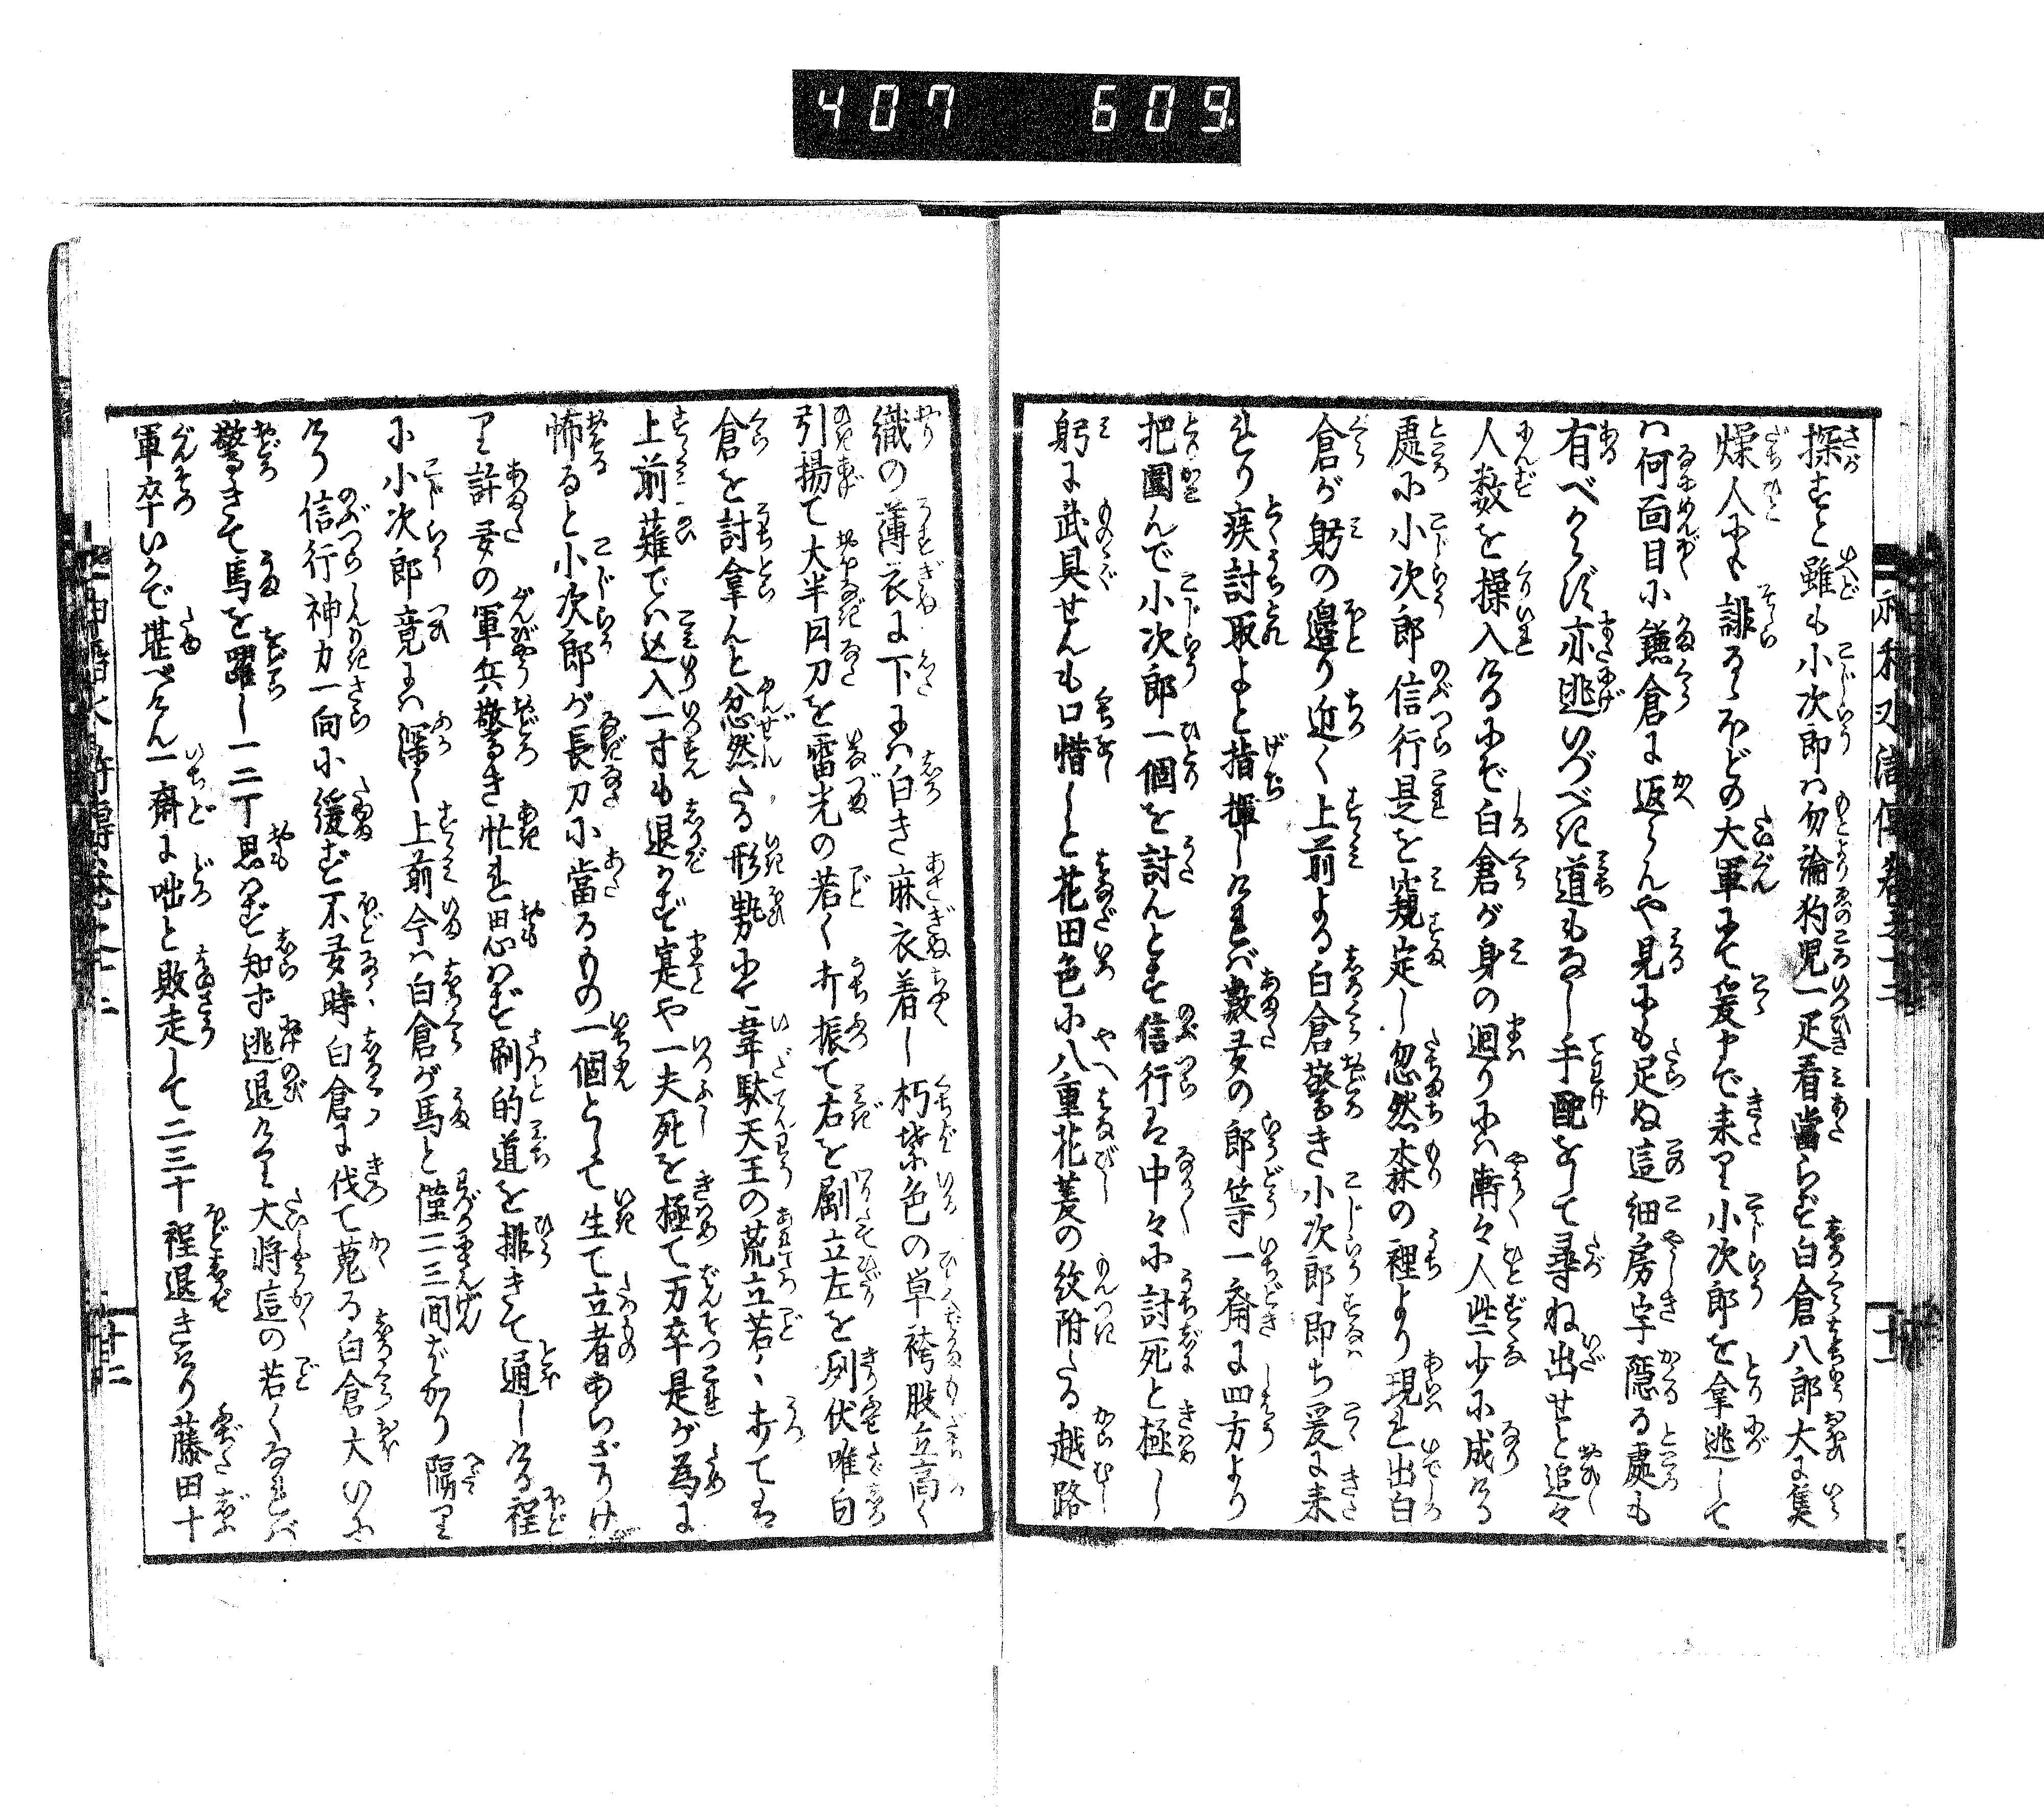 407 609
探すと雖も小次郎ハ勿論狗児一疋看當らず白倉八郎大に隻
燥人にも誹るゝほどの大軍にて爰まで来り小次郎を拿逃して
ハ何面目に鎌倉に返らんや見にも足ぬ這細房宇隠る處も
有べからず亦逃いづべき道もなし手配をして尋ね出せと追々
人数を操入けるにぞ白倉が身の廻りにハ漸々人些少に成ける
處に小次郎信行是を窺定し忽然森の裡より現れ出白
倉が躬の邉り近く上前よる白倉驚き小次郎即ち爰に来
れり疾討取よと指揮しければ數多の郎等一齊に四方より
把圍んで小次郎一個を討んとす信行ハ中々に討死と極し
躬に武具せんも口惜しと花田色に八重花菱の紋附たる越路
織の薄衣に下にハ白き麻衣着し朽葉色の草袴股立高く
引揚て大半月刀を雷光の若く打振て右を劚立左を列伏唯白
倉を討拿んと忿然たる形勢にて韋駄天王の荒立若く歩てハ
上前薙でハ込入一寸も退かず寔や一夫死を極て万卒是が為に
怖ると小次郎が長刀に當るもの一個として生て立者あらざりけ
り許多の軍兵驚き忙れ思ハず刷的道を排きて通しける程
に小次郎竟にハ深く上前今ハ白倉が馬と僅二三間ばかり隔り
けり信行神力一向に緩ず不多時白倉に伐て蒐る白倉大いに
驚きて馬を躍し一二丁思ハず知ず逃退けり大将這の若くなれバ
軍卒いかで堪べけん一齊に咄と敗走して二三十程退きけり藤田十
十二